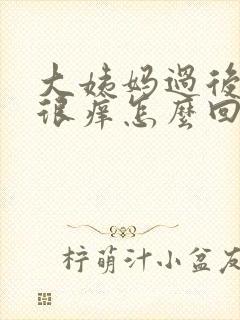 大姨妈過後
很癢怎麼回
柠萌汁小盆友